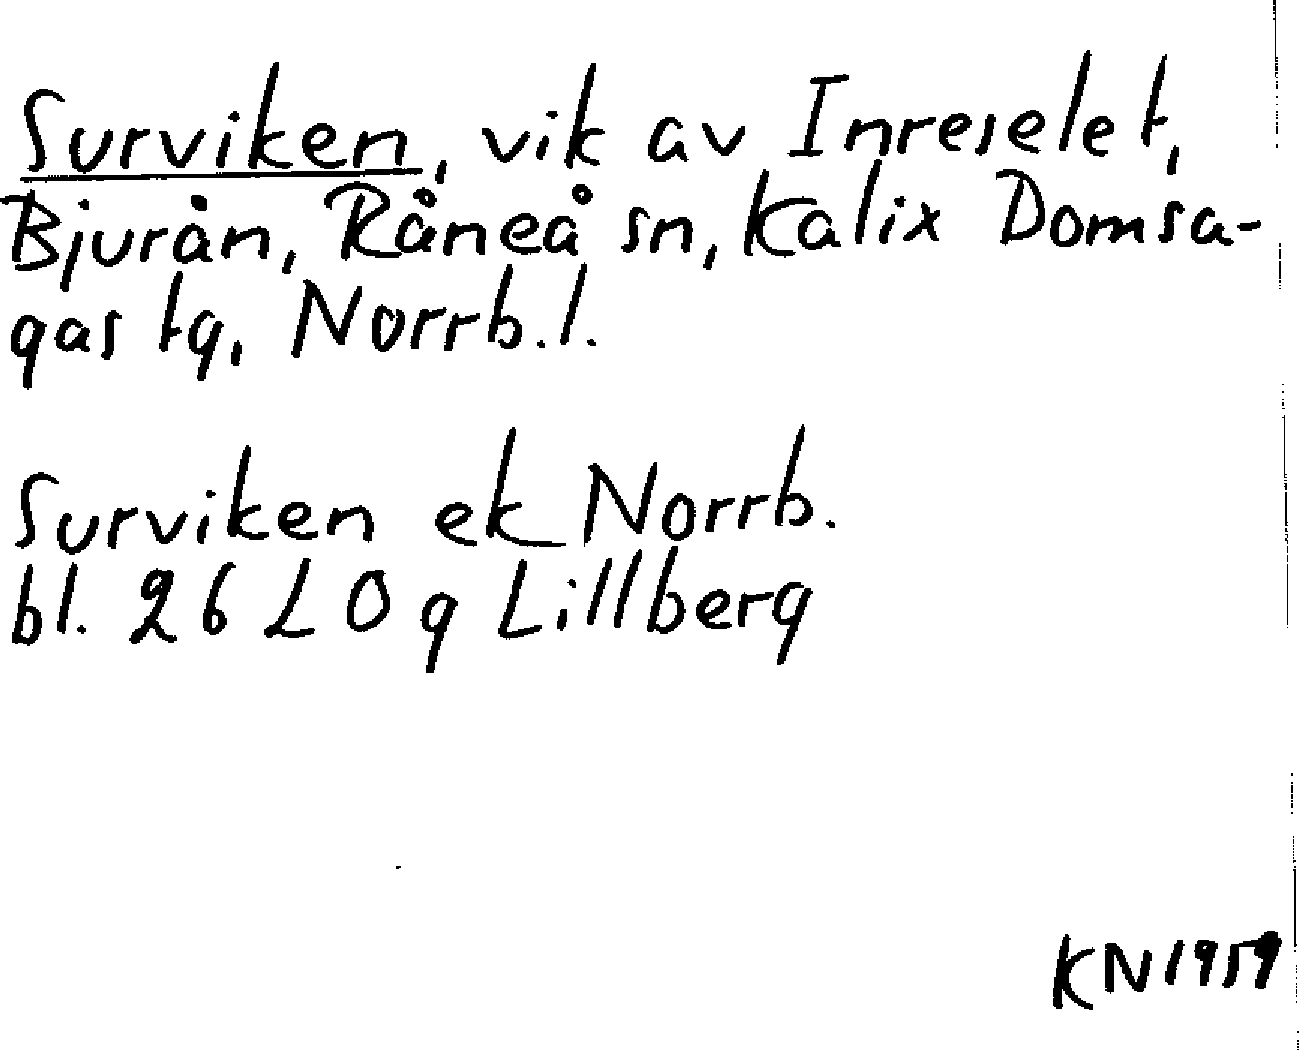 Surviken, vik av Inreselet,
Bjurån, Råneå sn, Kalix Domsa-
gas tg, Norrb. l.
Surviken ek Norrb.
bl. 26 L 0 g Lillberg
KN 1959